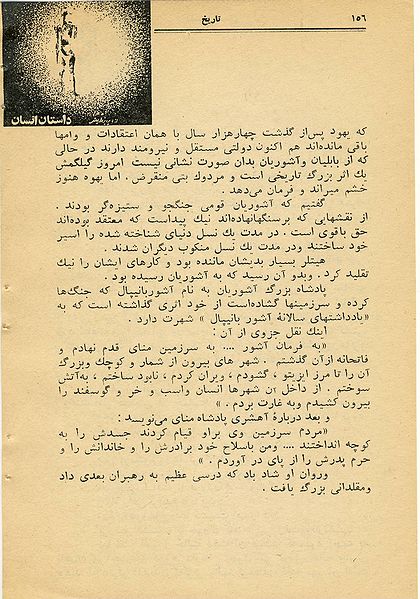 ۱۵۶
تاریخ
داستان انسان
که یهود پس‌از گذشت چهارهزار سال با همان اعتقادات و وامها
باقی مانده‌اند هم اکنون دولتی مستقل و نیرومند دارند در حالی
که از بابلیان وآشوریان بدان صورت نشانی نیست امروز گیلگمش
یك اثر بزرگ تاریخی است و مردوك بتی منقرض. اما یهوه هنوز
خشم میراند و فرمان می‌دهد.
گفتیم که آشوریان قومی جنگجو و ستیزه‌گر بودند.
از نقشهایی که برسنگهانهاده‌اند نیك پیداست که معتقد بوده‌اند
حق باقوی است. در مدت یك نسل دنیای شناخته شده را اسیر
خود ساختند ودر مدت یك نسل منکوب دیگران شدند.
هیتلر بسیار بدیشان مانده بود و کارهای ایشان را نیك
تقلید کرد. وبدو آن رسید که به آشوریان رسیده بود.
پادشاه بزرگ آشوریان به نام آشوربانیپال که جنگ‌ها
کرده و سرزمینها گشاده‌است از خود اثری گذاشته است که به
«یادداشتهای سالانهٔ آشور بانیپال» شهرت دارد.
اینك نقل جزوی از آن:
«به فرمان آشور .... به سرزمین منای قدم نهادم و
فاتحانه ازآن گذشتم. شهر های بیرون از شمار و کوچك وبزرگ
آن را تا مرز ایزیتو، گشودم، ویران کردم، نابود ساختم، به‌آتش
سوختم. از داخل آن شهرها انسان واسب و خر و گوسفند را
بیرون کشیدم وبه غارت بردم.»
و بعد دربارهٔ آهشری پادشاه منای می‌نویسد:
«مردم سرزمین وی براو قیام کردند جسدش را به
کوچه انداختند .... ومن باسلاح خود برادرش را و خاندانش را و
حرم پدرش را از پای در آوردم.»
وروان او شاد باد که درسی عظیم به رهبران بعدی داد
ومقلدانی بزرگ یافت.